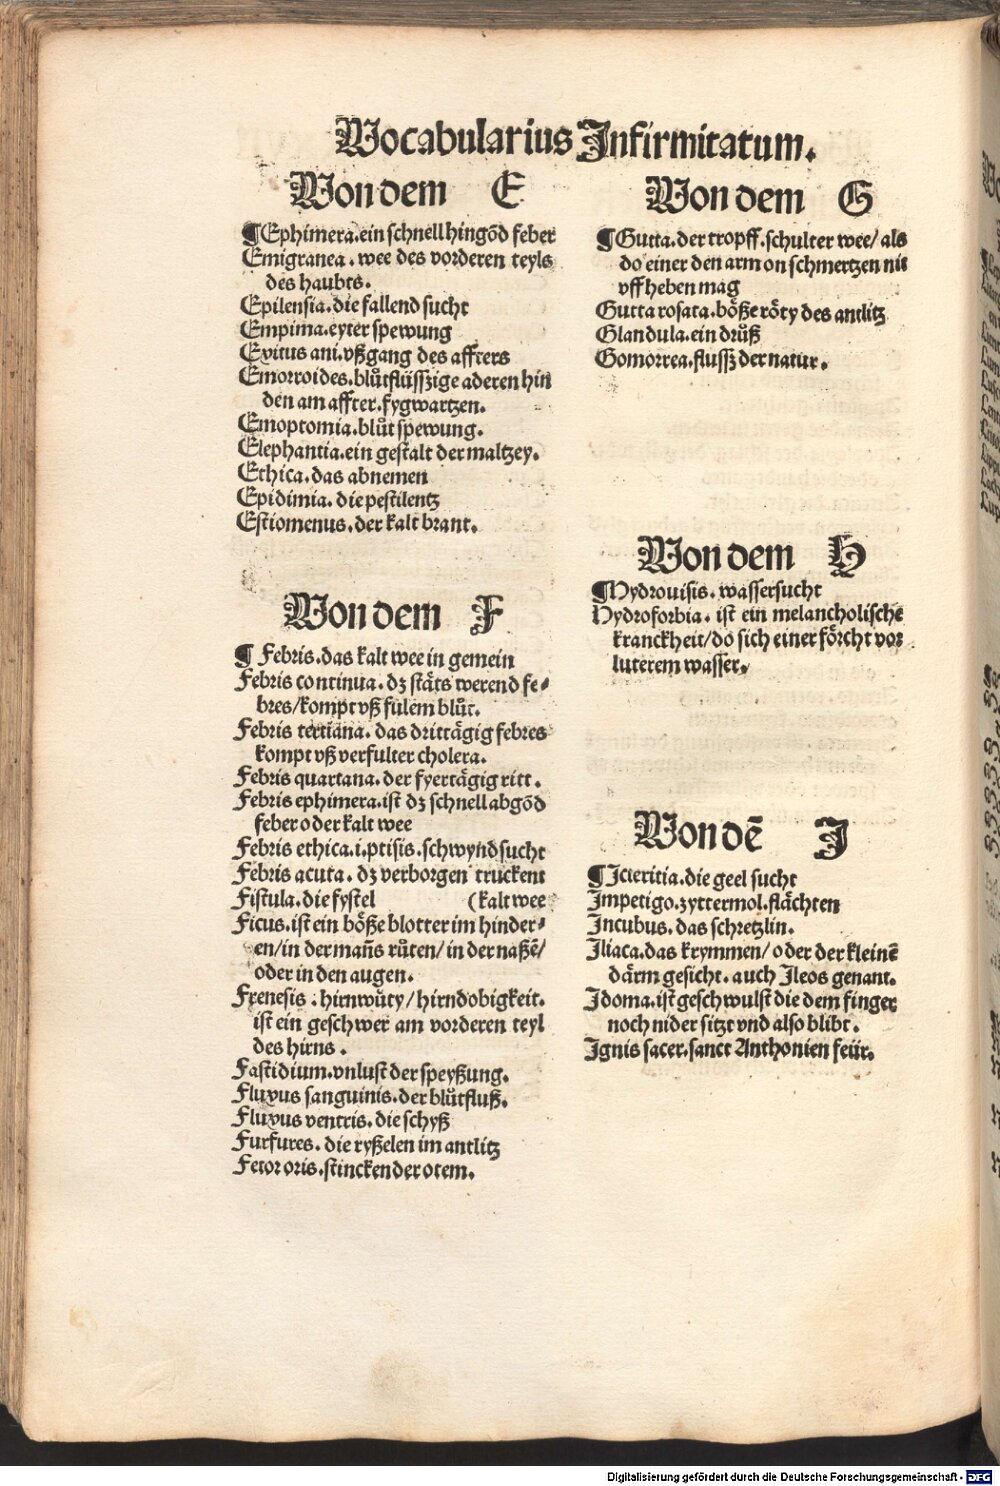 Vocabularius Infirmitatum.
Von dem E
¶Ephimera.ein schnell hingōd feber
Emigranea. wee des vorderen teyls
des haubts.
Epilensia.die fallend sucht
Empima.eyter spewung
Exitus ani.vßgang des affters
Emorroides.blůtflüsszige aderen hin
den am affter.fygwartzen.
Emoptomia.blůt spewung.
Elephantia.ein gestalt der maltzey.
Ethica.das abnemen
Epidimia.die pestilentz
Estiomenus.der kalt brant.
Von dem F
¶ Febris.das kalt wee in gemein
Febris continua. dz stäts werend fe-
bres/kompt vß fulem blůt.
Febris tertiana. das drittägig febres
kompt vß verfulter cholera.
Febris quartana. der fyertägig ritt.
Febris ephimera.ist dz schnell abgōd
feber oder kalt wee
Febris ethica.i.ptisis.schwyndsucht
Febris acuta. dz verborgen truckent
Fistula.die fystel (kalt wee
Ficus.ist ein böße blotter im hinder-
en/in der mañs růten/in der naßē/
oder in den augen.
Frenesis. hirnwůty/hirndobigkeit.
ist ein geschwer am vorderen teyl
des hirns.
Fastidium.vnlust der speyßung.
Fluxus sanguinis.der blůtfluß.
Fluxus ventris.die schyß
Furfures. die ryßelen im antlitz
Fetor oris.stinckender otem.
Von dem G
¶Gutta.der tropff.schulter wee/als
do einer den arm on schmertzen nit
vff heben mag
Gutta rosata.böße röty des antlitz
Glandula.ein drüß
Gomorrea.flussz der natur.
Von dem H
¶Hydrouisis.wassersucht
Hydroforbia. ist ein melancholische
kranckheit/do sich einer förcht vor
luterem wasser.
Von dē J
¶Icteritia.die geel sucht
Impetigo.zyttermol.flächten
Incubus.das schretzlin.
Iliaca.das krymmen/oder der kleinē
därm gesicht.auch Ileos genant.
Idoma.ist geschwulst die dem finger
noch nider sitzt vnd also blibt.
Ignis sacer.sanct Anthonien feür.
Digitalisierung gefördert durch die Deutsche Forschungsgemeinschaft - DFG